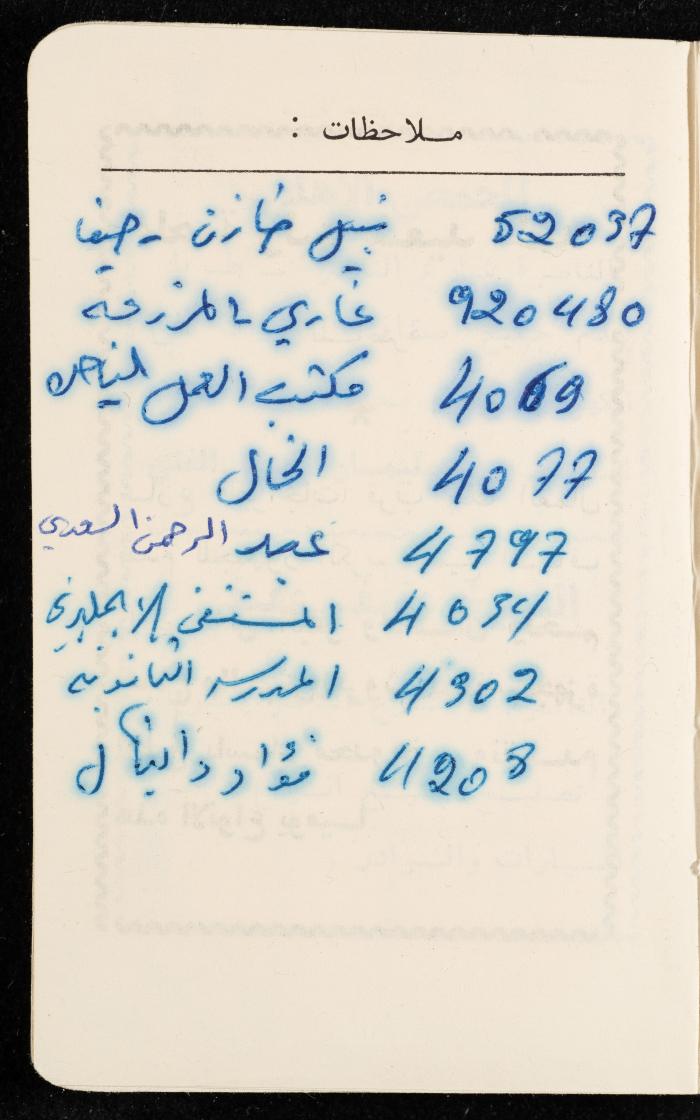 ملاحظات :
نبيل خازن - حيفا 52037
غازي - المزرعة 920480
مكتب العمل 4069
الخال 4077
عبد الرحمن السعدي 4797
المستشفى الانجليزي 4034
المدرسه الثانويه 4302
فؤاد دانيال 4208